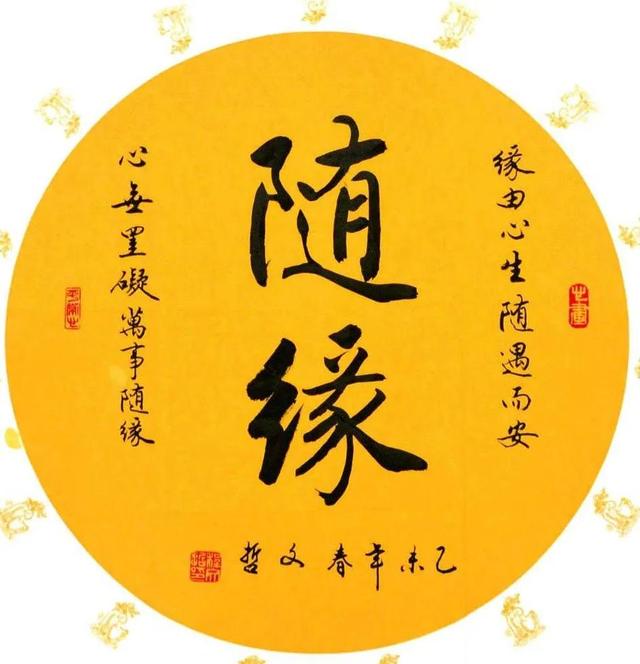 随缘
缘由心生随遇而安
心無罣礙萬事随缘
乙未年春文哲